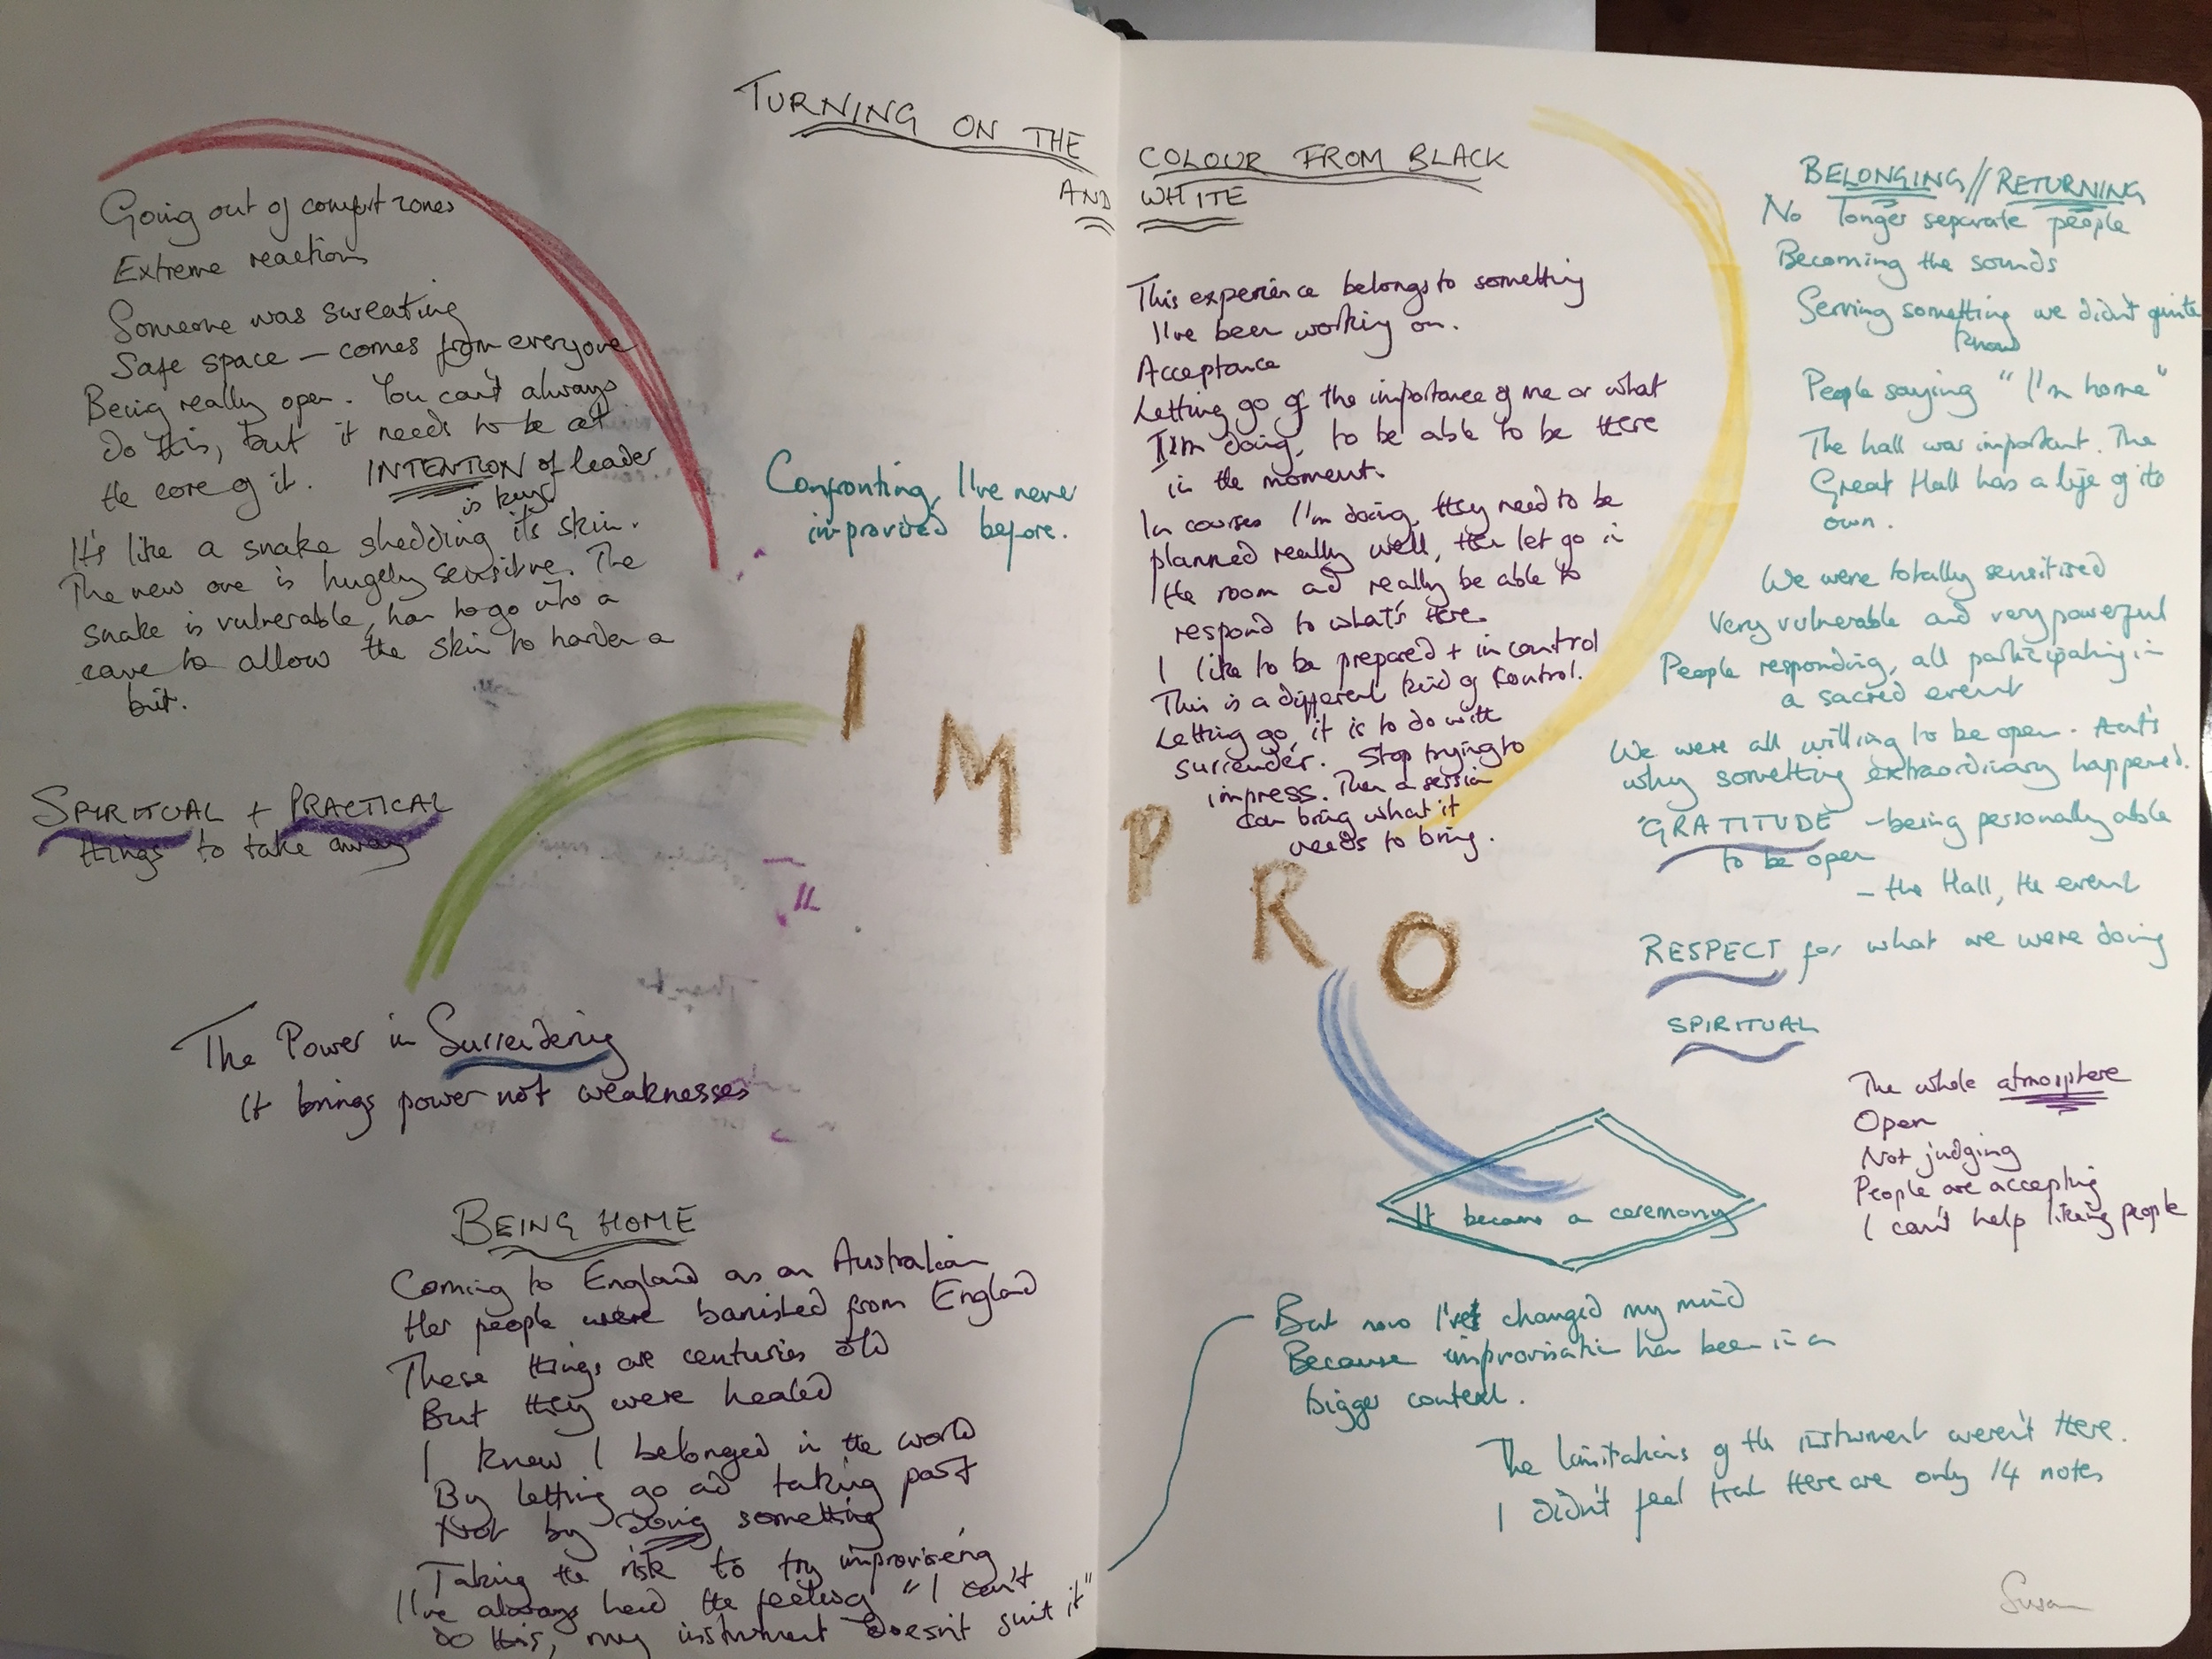 TURNING ON THE COLOUR FROM BLACK
AND WHITE
Going out of comfort zones
Extreme reactions
Someone was sweating
Safe space – comes from everyone
Being really open. You can't always
do this, but it needs to be at
the core of it. INTENTION of leader
is key
It's like a snake shedding its skin.
The new one is hugely sensitive. The
snake is vulnerable, has to go into a
cave to allow the skin to harden a
bit.
Confronting, I've never
improvised before.
SPIRITUAL + PRACTICAL
things to take away
The Power in Surrendering
It brings power not weaknesses
BEING HOME
Coming to England as an Australian
Her people were banished from England
These things are centuries old
But they were healed
I knew I belonged in the world
By letting go and taking part
Not by doing something
Taking the risk to try improvising
I've always had the feeling "I can't
do this, my instrument doesn't suit it"
IMPRO
This experience belongs to something
I've been working on.
Acceptance
Letting go of the importance of me or what
I'm doing, to be able to be there
in the moment.
In courses I'm doing, they need to be
planned really well, then let go in
the room and really be able to
respond to what's there.
I like to be prepared + in control
This is a different kind of control.
Letting go, it is to do with
surrender. Stop trying to
impress. Then a session
can bring what it
needs to bring.
BELONGING // RETURNING
No longer separate people
Becoming the sounds
Serving something we didn't quite
know
People saying "I'm home"
The hall was important. The
Great Hall has a life of its
own.
We were totally sensitised
Very vulnerable and very powerful
People responding, all participating in
a sacred event
We were all willing to be open. that's
why something extraordinary happened.
GRATITUDE – being personally able
to be open
– the Hall, the event
RESPECT for what we were doing
SPIRITUAL
The whole atmosphere
Open
Not judging
People are accepting
I can't help liking people
It became a ceremony
But now I've changed my mind
Because improvisation has been in a
bigger context.
The limitations of the instrument weren't there.
I didn't feel that there are only 14 notes
Susan